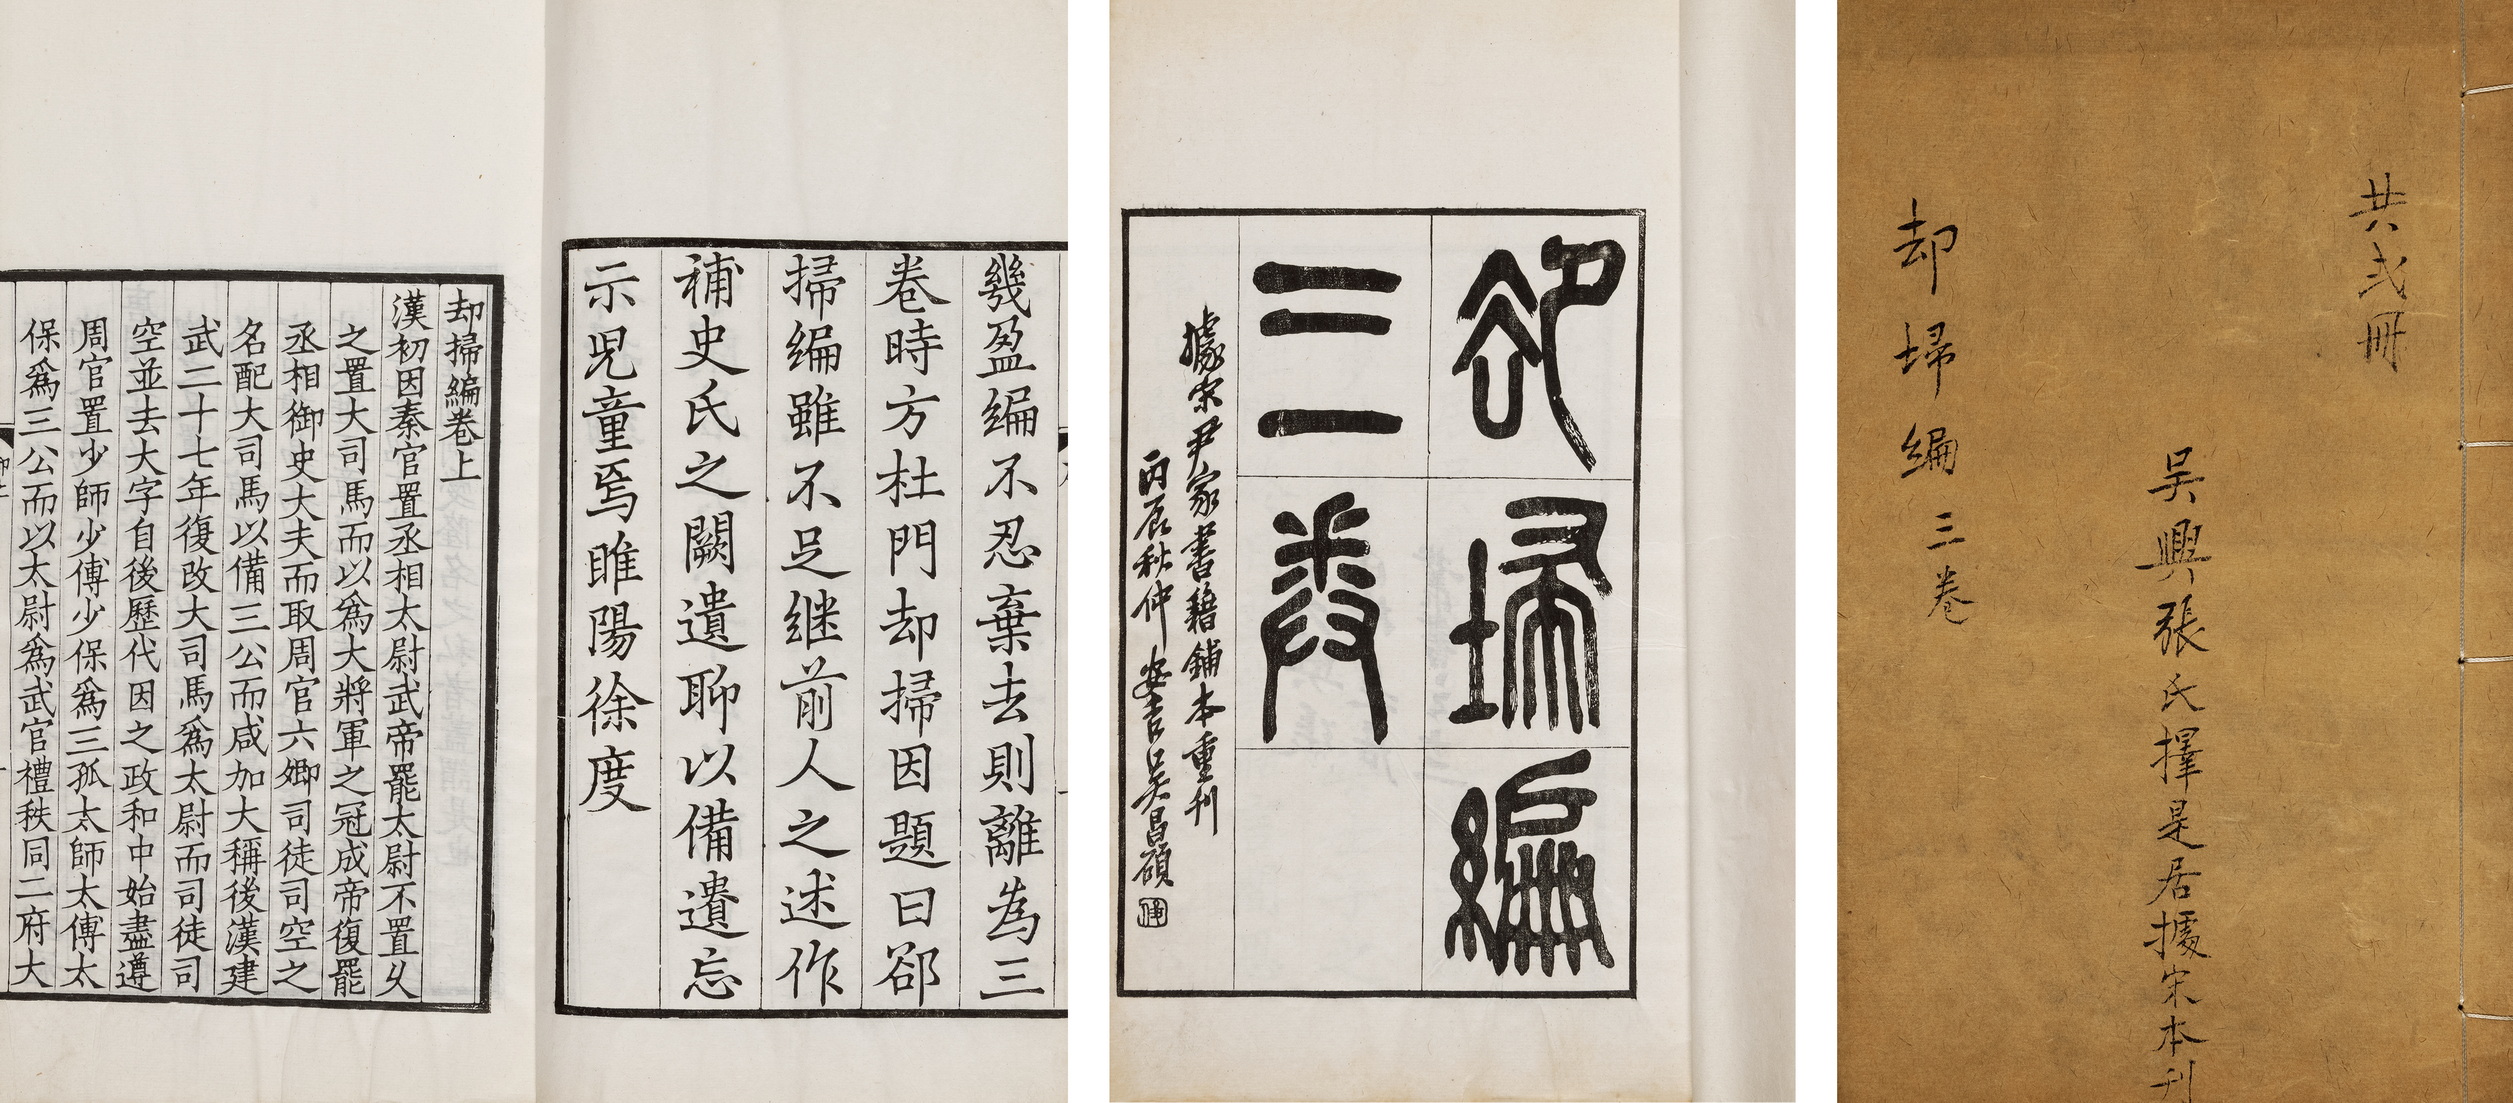 共弍冊
吳興張氏擇是居據宋本刊
却埽編三卷
卻埽編
三卷
據宋尹家書籍鋪本重刊
丙辰秋仲 安吉吳昌碩
幾盈編不忍棄去則離為三
卷時方杜門却掃因題曰郤
掃編雖不足継前人之述作
補史氏之闕遺聊以備遺忘
示児童焉睢陽徐度
却掃編卷上
漢初因秦官置丞相太尉武帝罷太尉不置乆
之置大司馬而以爲大將軍之冠成帝復罷
丞相御史大夫而取周官六卿司徒司空之
名配大司馬以備三公而咸加大稱後漢建
武二十七年復改大司馬爲太尉而司徒司
空並去大字自後歷代因之政和中始盡遵
周官置少師少傅少保爲三孤太師太傅太
保爲三公而以太尉爲武官禮秩同二府大